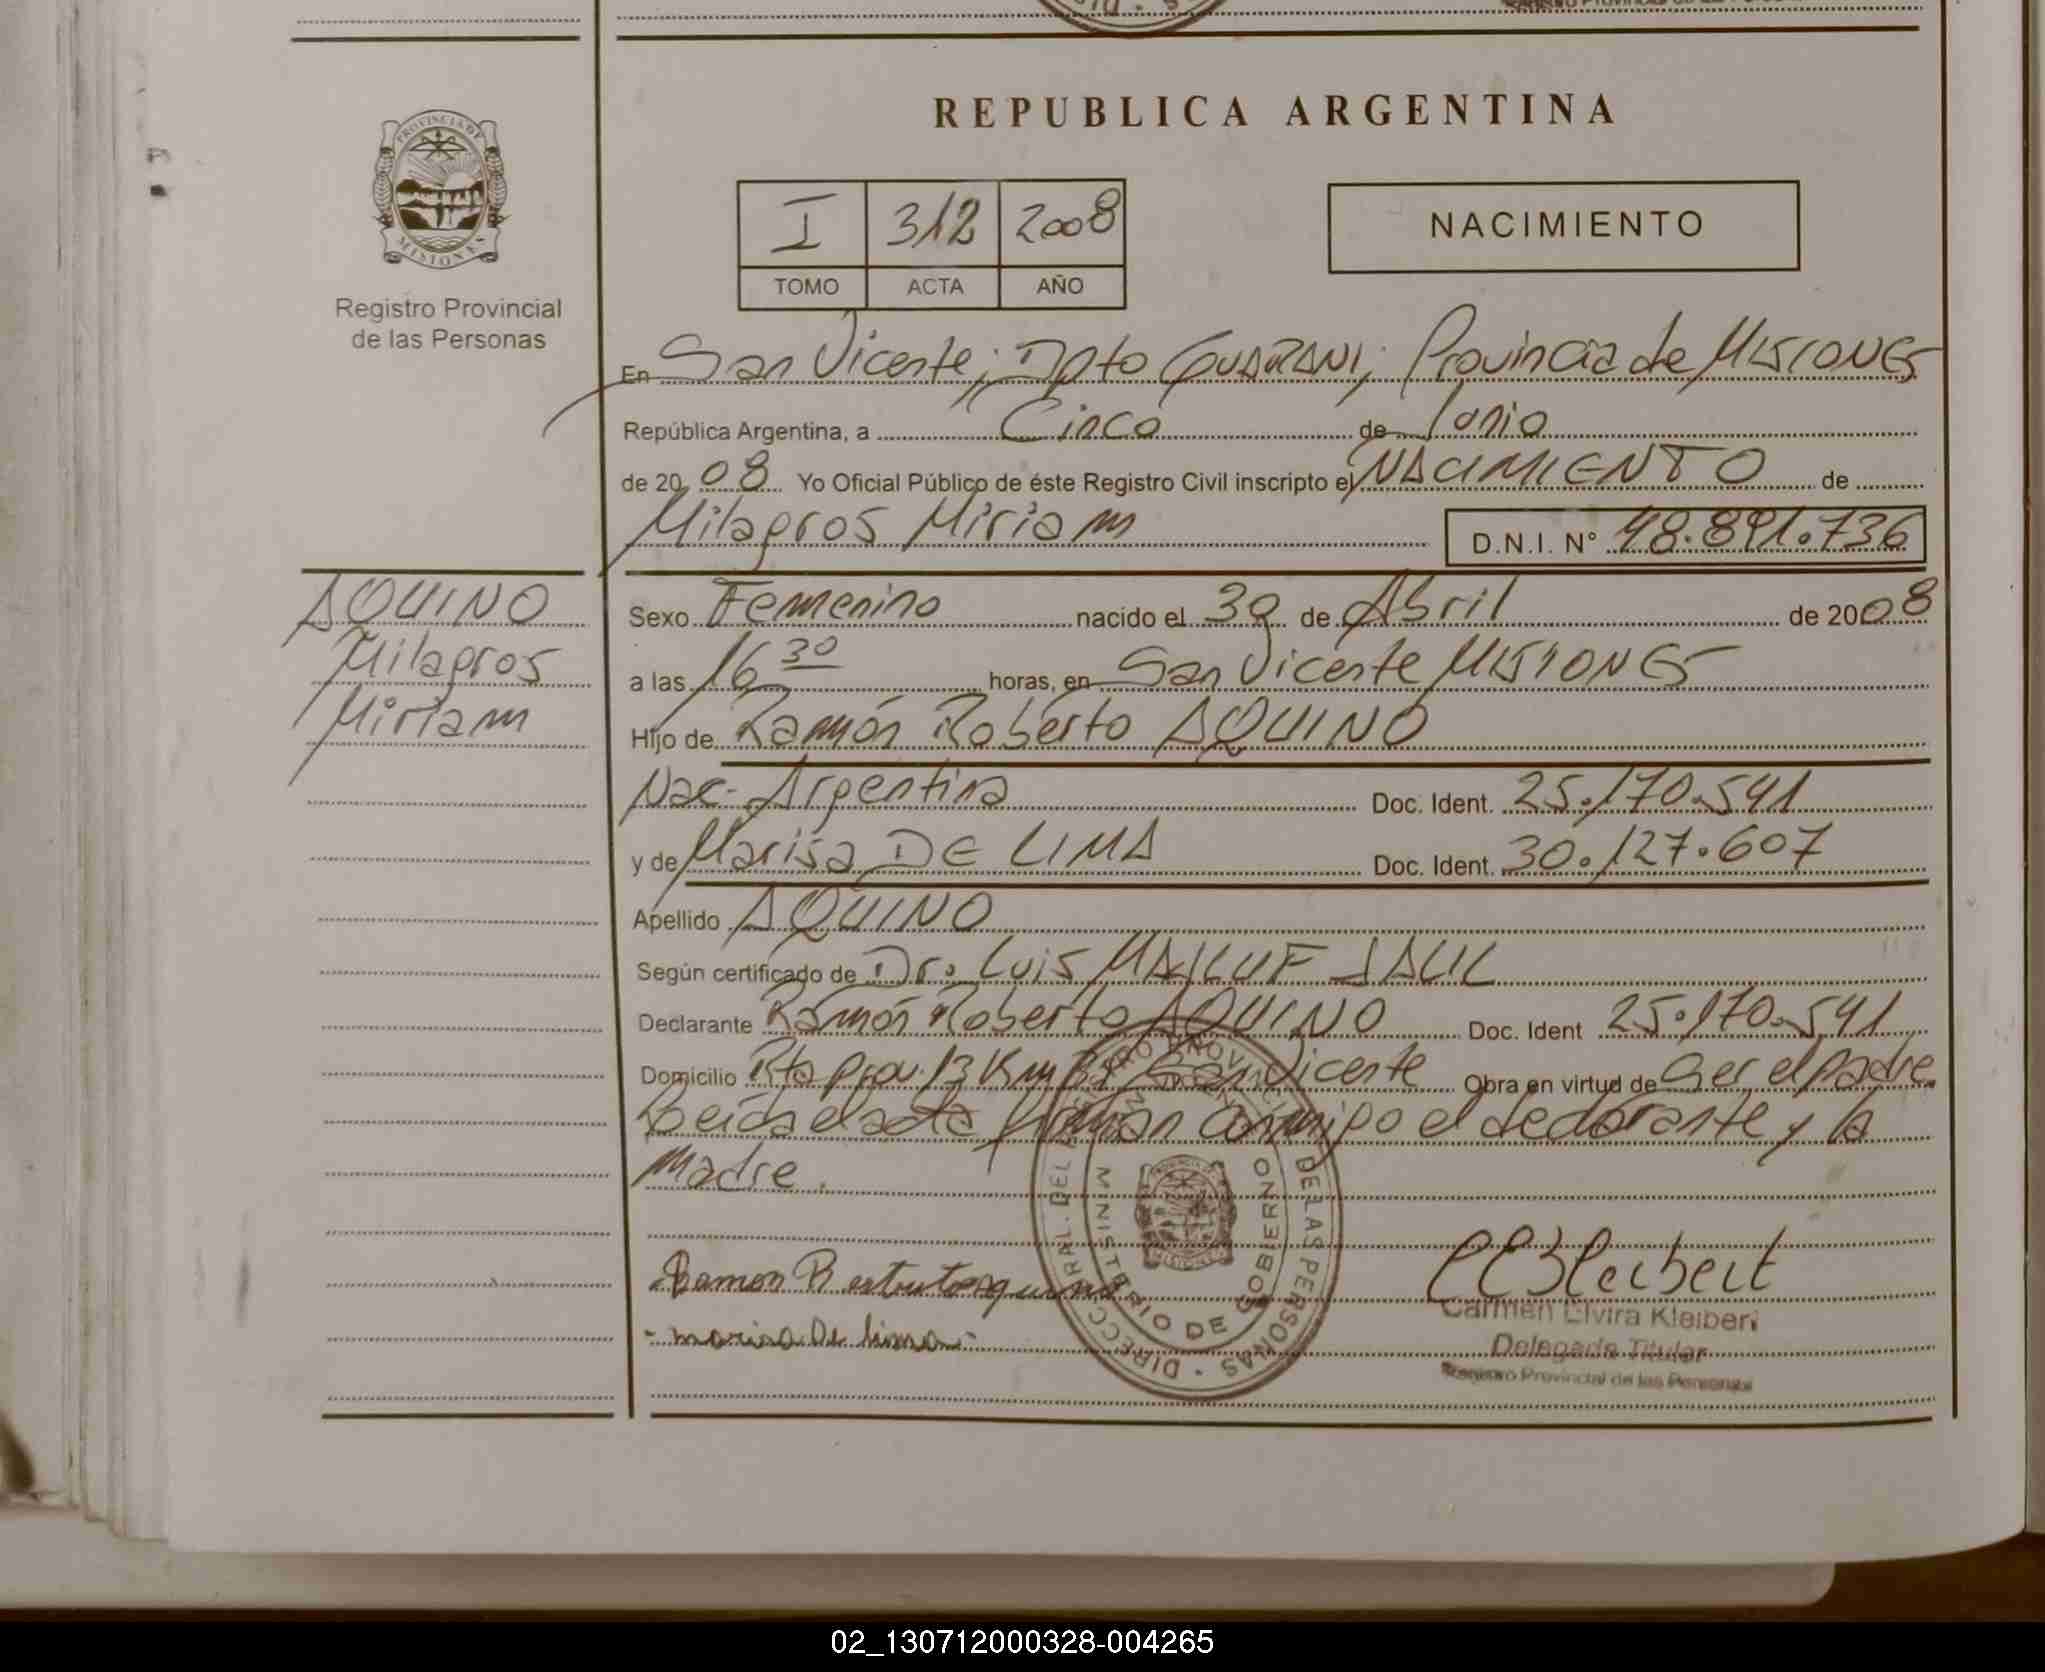 REPUBLICA ARGENTINA
PROVINCIA DE MISIONES
Registro Provincial
de las Personas
I 312 2008
TOMO ACTA AÑO
NACIMIENTO
En San Vicente; Dpto GUARANI; Provincia de MISIONES
República Argentina, a Cinco de Junio
de 2008 Yo Oficial Público de éste Registro Civil inscripto el NACIMIENTO de
Milagros Miriam D.N.I. N° 48.891.736
AQUINO
Milagros
Miriam
Sexo Femenino nacido el 30 de Abril de 2008
a las 16 30 horas, en San Vicente MISIONES
Hijo de Ramón Roberto AQUINO
Nac. Argentina Doc. Ident. 25.170.541
y de Marisa DE LIMA Doc. Ident. 30.127.607
Apellido AQUINO
Según certificado de Dr. Luis JALIL
Declarante Ramón Roberto AQUINO Doc. Ident 25.170.541
Domicilio Rta prov. 13 Km San Vicente Obra en virtud de Ser el padre.
Leída el acta firman conmigo el declarante y la
Madre.
Ramon
marisa De lima
DIRECC. GRAL. DEL REGISTRO PROVINCIAL DE LAS PERSONAS
MINISTERIO DE GOBIERNO
Carmen Elvira Kleibert
Delegada Titular
Registro Provincial de las Personas
02_130712000328-004265